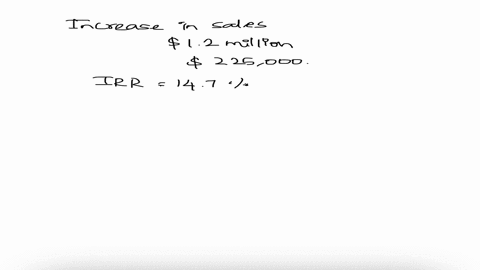 Increase in sales
$1.2 million
$ 225,000.
IRR = 14.7 %